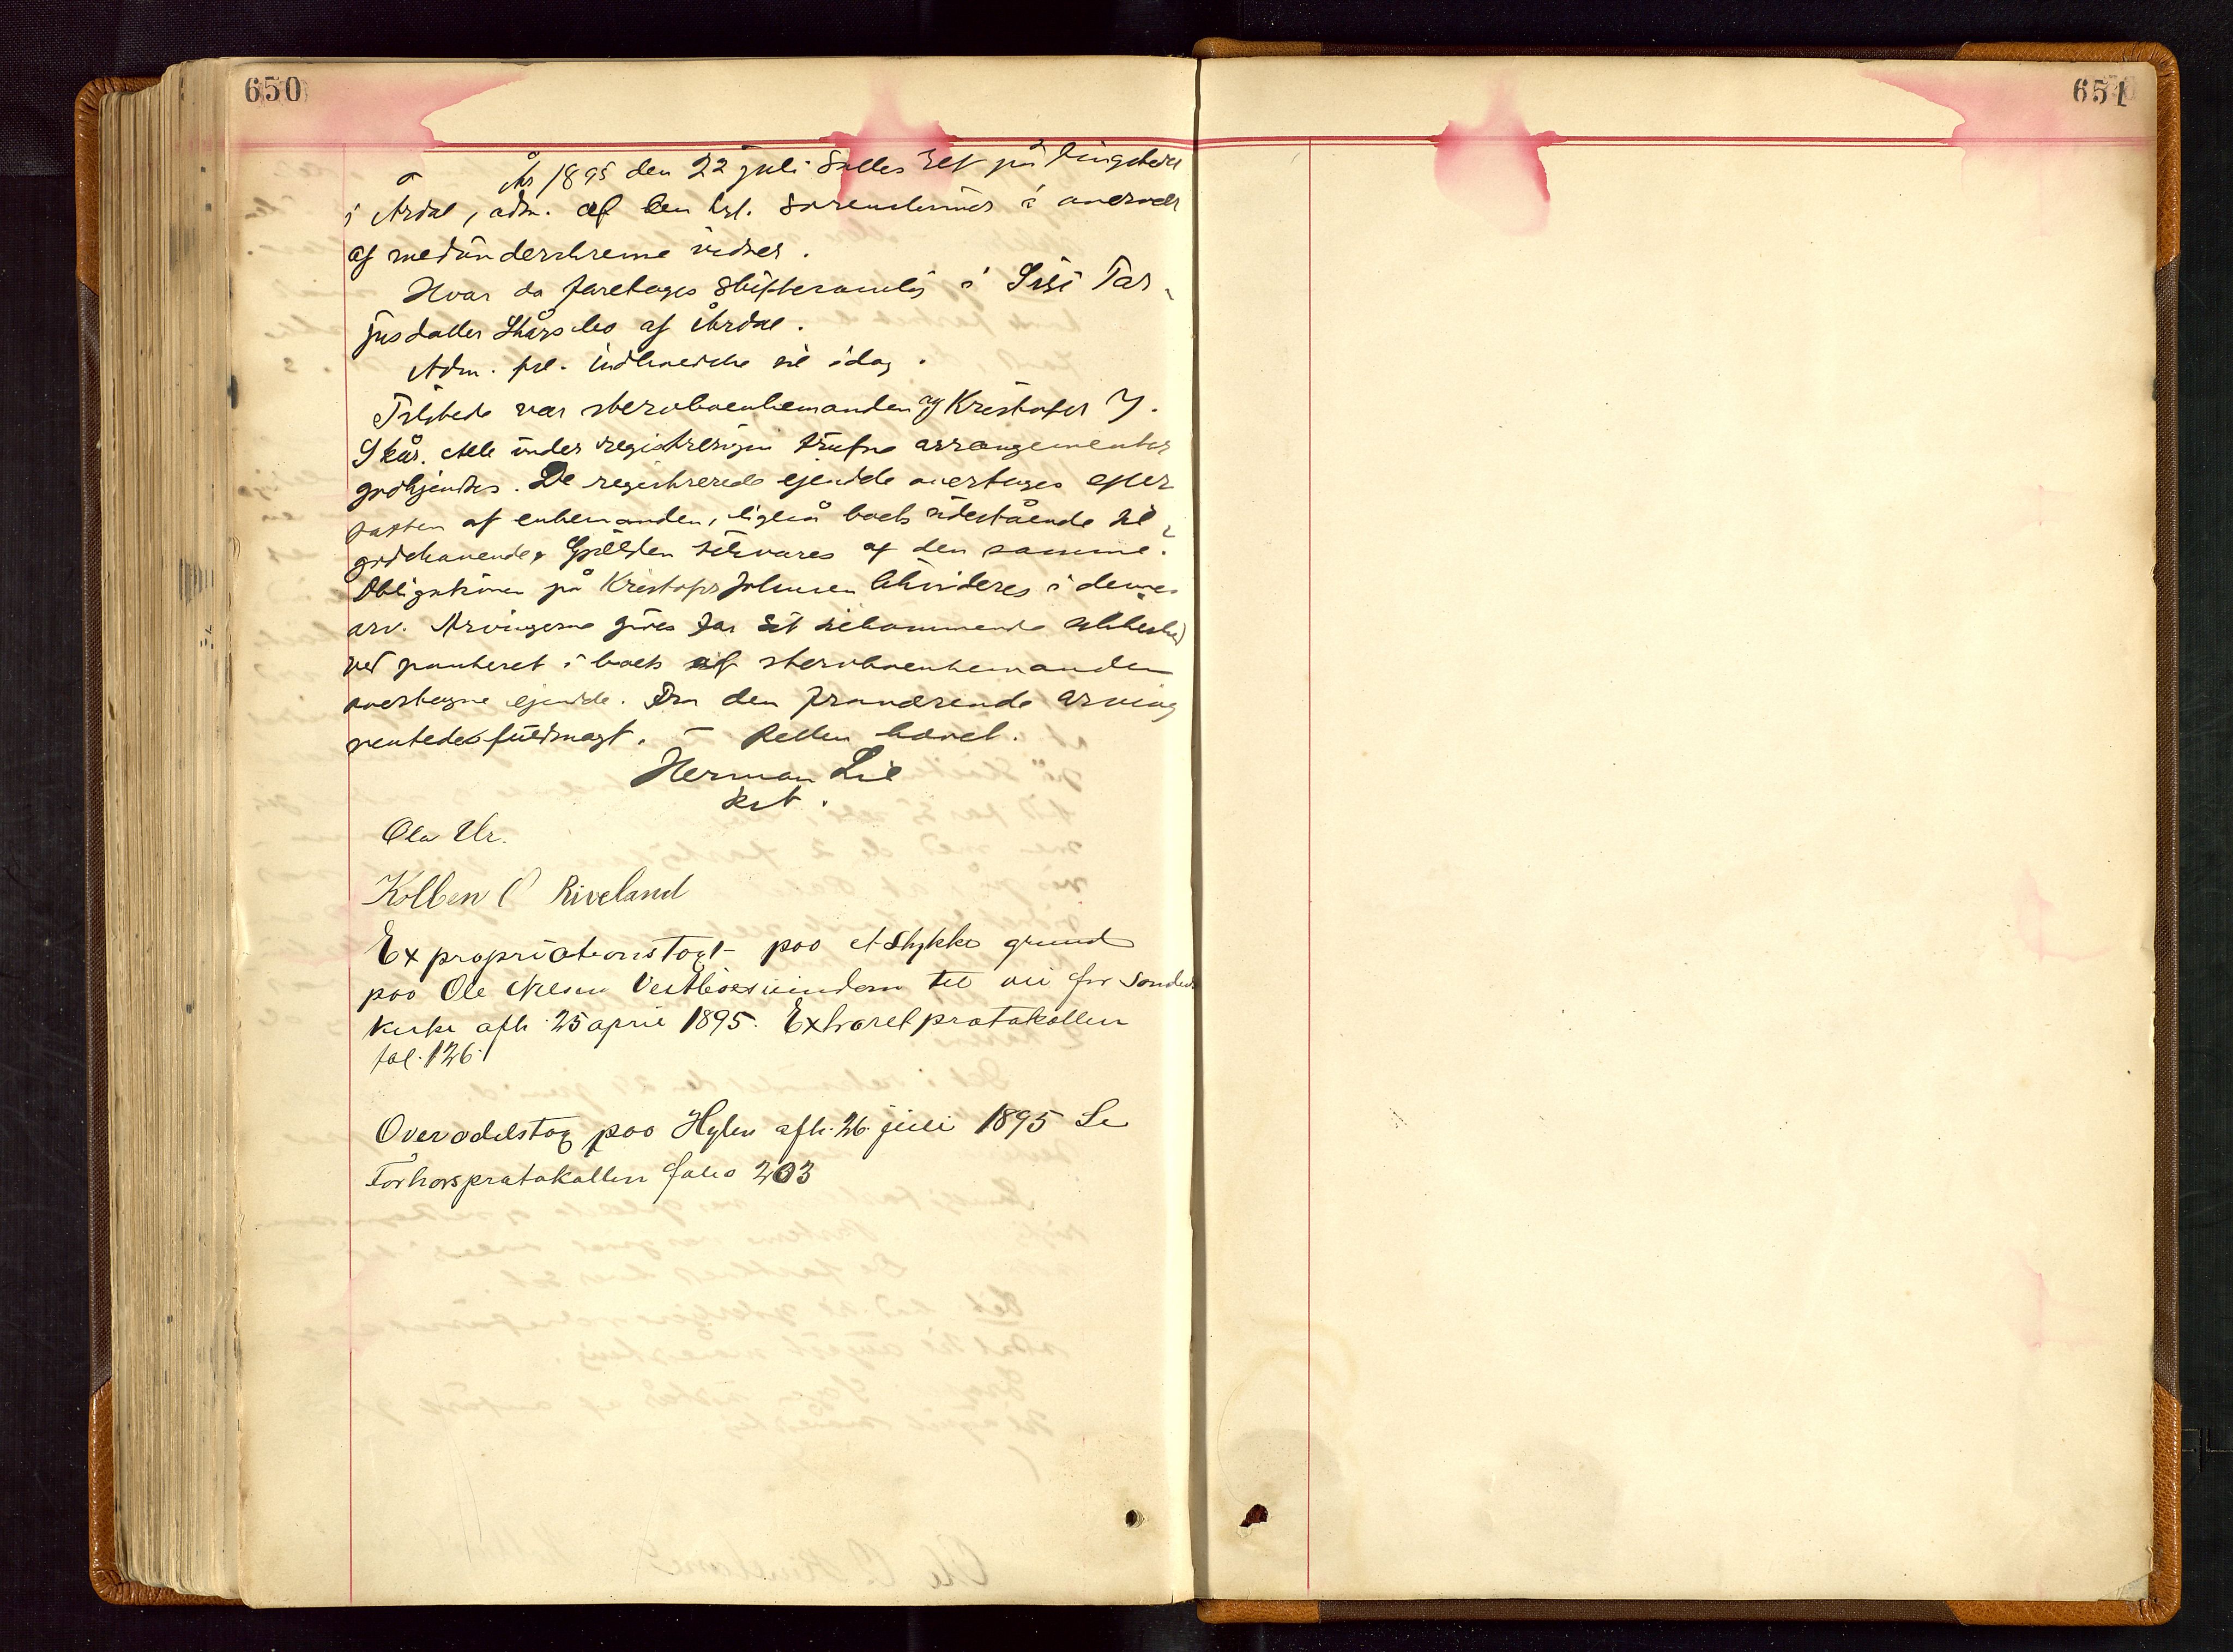 650
År 1895 den 22 juli sattes ret på tingstedet
i Årdal, adm. af den kst. sorenskriver i overvær
af medunderskrevne vidner.
Hvor da foretoges skiftesamlg i Siri Tor-
jusdatter Skårs bo af Årdal.
Adm. frl. indkaldte til idag.
Tilstede var stervboenkemanden og Kristofer J.
Skår. Alle under registreringen trufne arrangementer
godkjendtes. De registrerede eiendele overtages efter
taxten af enkemanden, ligeså boets udestående til-
godehavende. Gjælden tilsvares af den samme.
Obligationen på Kristofer Johnsen likvideres i dennes
arv. Arvingerne gives for sit tilkommende sikkerhed
ved panteret i boets af stervboenkemanden
overtagne eiendele. Fra den fraværende arving
ventedes fuldmagt. — Retten hævet.
Herman Lie
kst.
Ola Ur.
Kolben O Riveland
Expropriationstagt paa et stykke grund
paa Ole Nilsen Vestbøes eiendom til vei for Sandeid
kirke afh. 25 april 1895. Extraretprotokollen
fol. 126.
Overodelstagt paa Hylen afh. 26 juli 1895 Se
Forhørsprotokollen folio 203
651